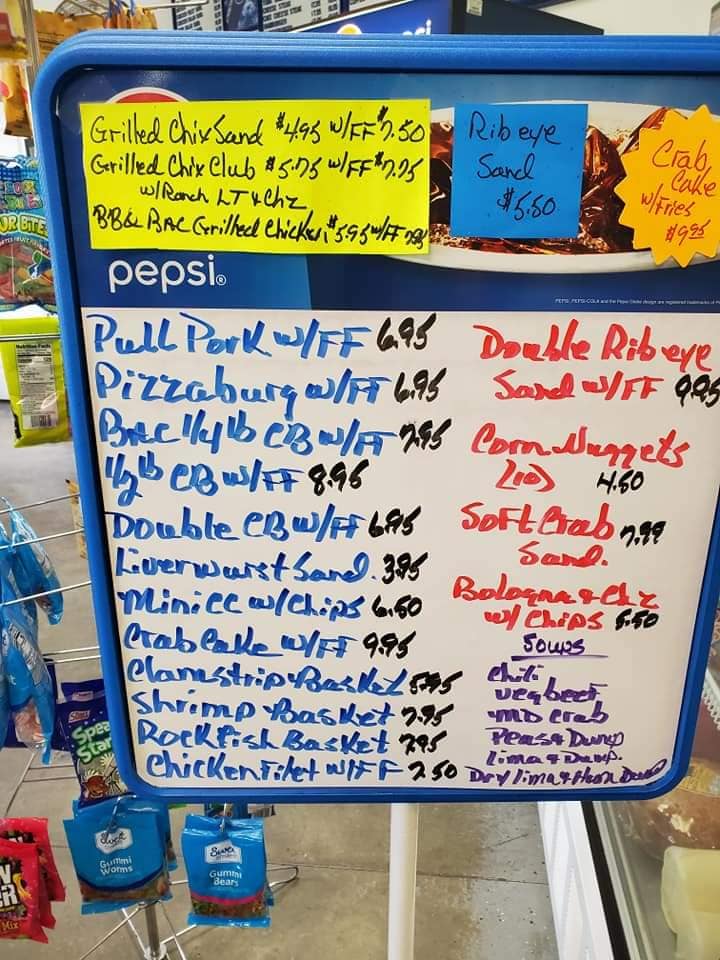 Grilled Chix Sand $4.95 w/FF $7.50
Grilled Chix Club $5.75 w/FF $7.75
w/Ranch LT & Chz
BB& BAC Grilled Chicken $5.95 w/FF
Rib eye
Sand
$5.50
Crab
Cake
w/Fries
$9.95
pepsi
Pull Pork w/FF 6.95
Pizzaburg w/FF 6.95
BAC 1/4 lb CB w/FF 7.95
1/2 lb CB w/FF 8.95
Double CB w/FF 6.95
Liverwurst Sand. 3.95
Mini CC w/Chips 6.50
Crab Cake w/FF 9.95
Clamstrip Basket 5.95
Shrimp Basket 7.95
Rockfish Basket 7.95
Chicken Filet w/FF 7.50
Double Rib eye
Sand w/FF 9.95
Corn Nuggets
(10) 4.50
Soft Crab 7.99
Sand.
Bologna & Chz
w/ Chips 5.50
Soups
Chili
Veg beef
MD Crab
Peas & Dump
Lima & Dump.
Dry lima & Ham Dump
Swett
Gummi
Worms
Gummi
Bears
Nutrition Facts
Mix